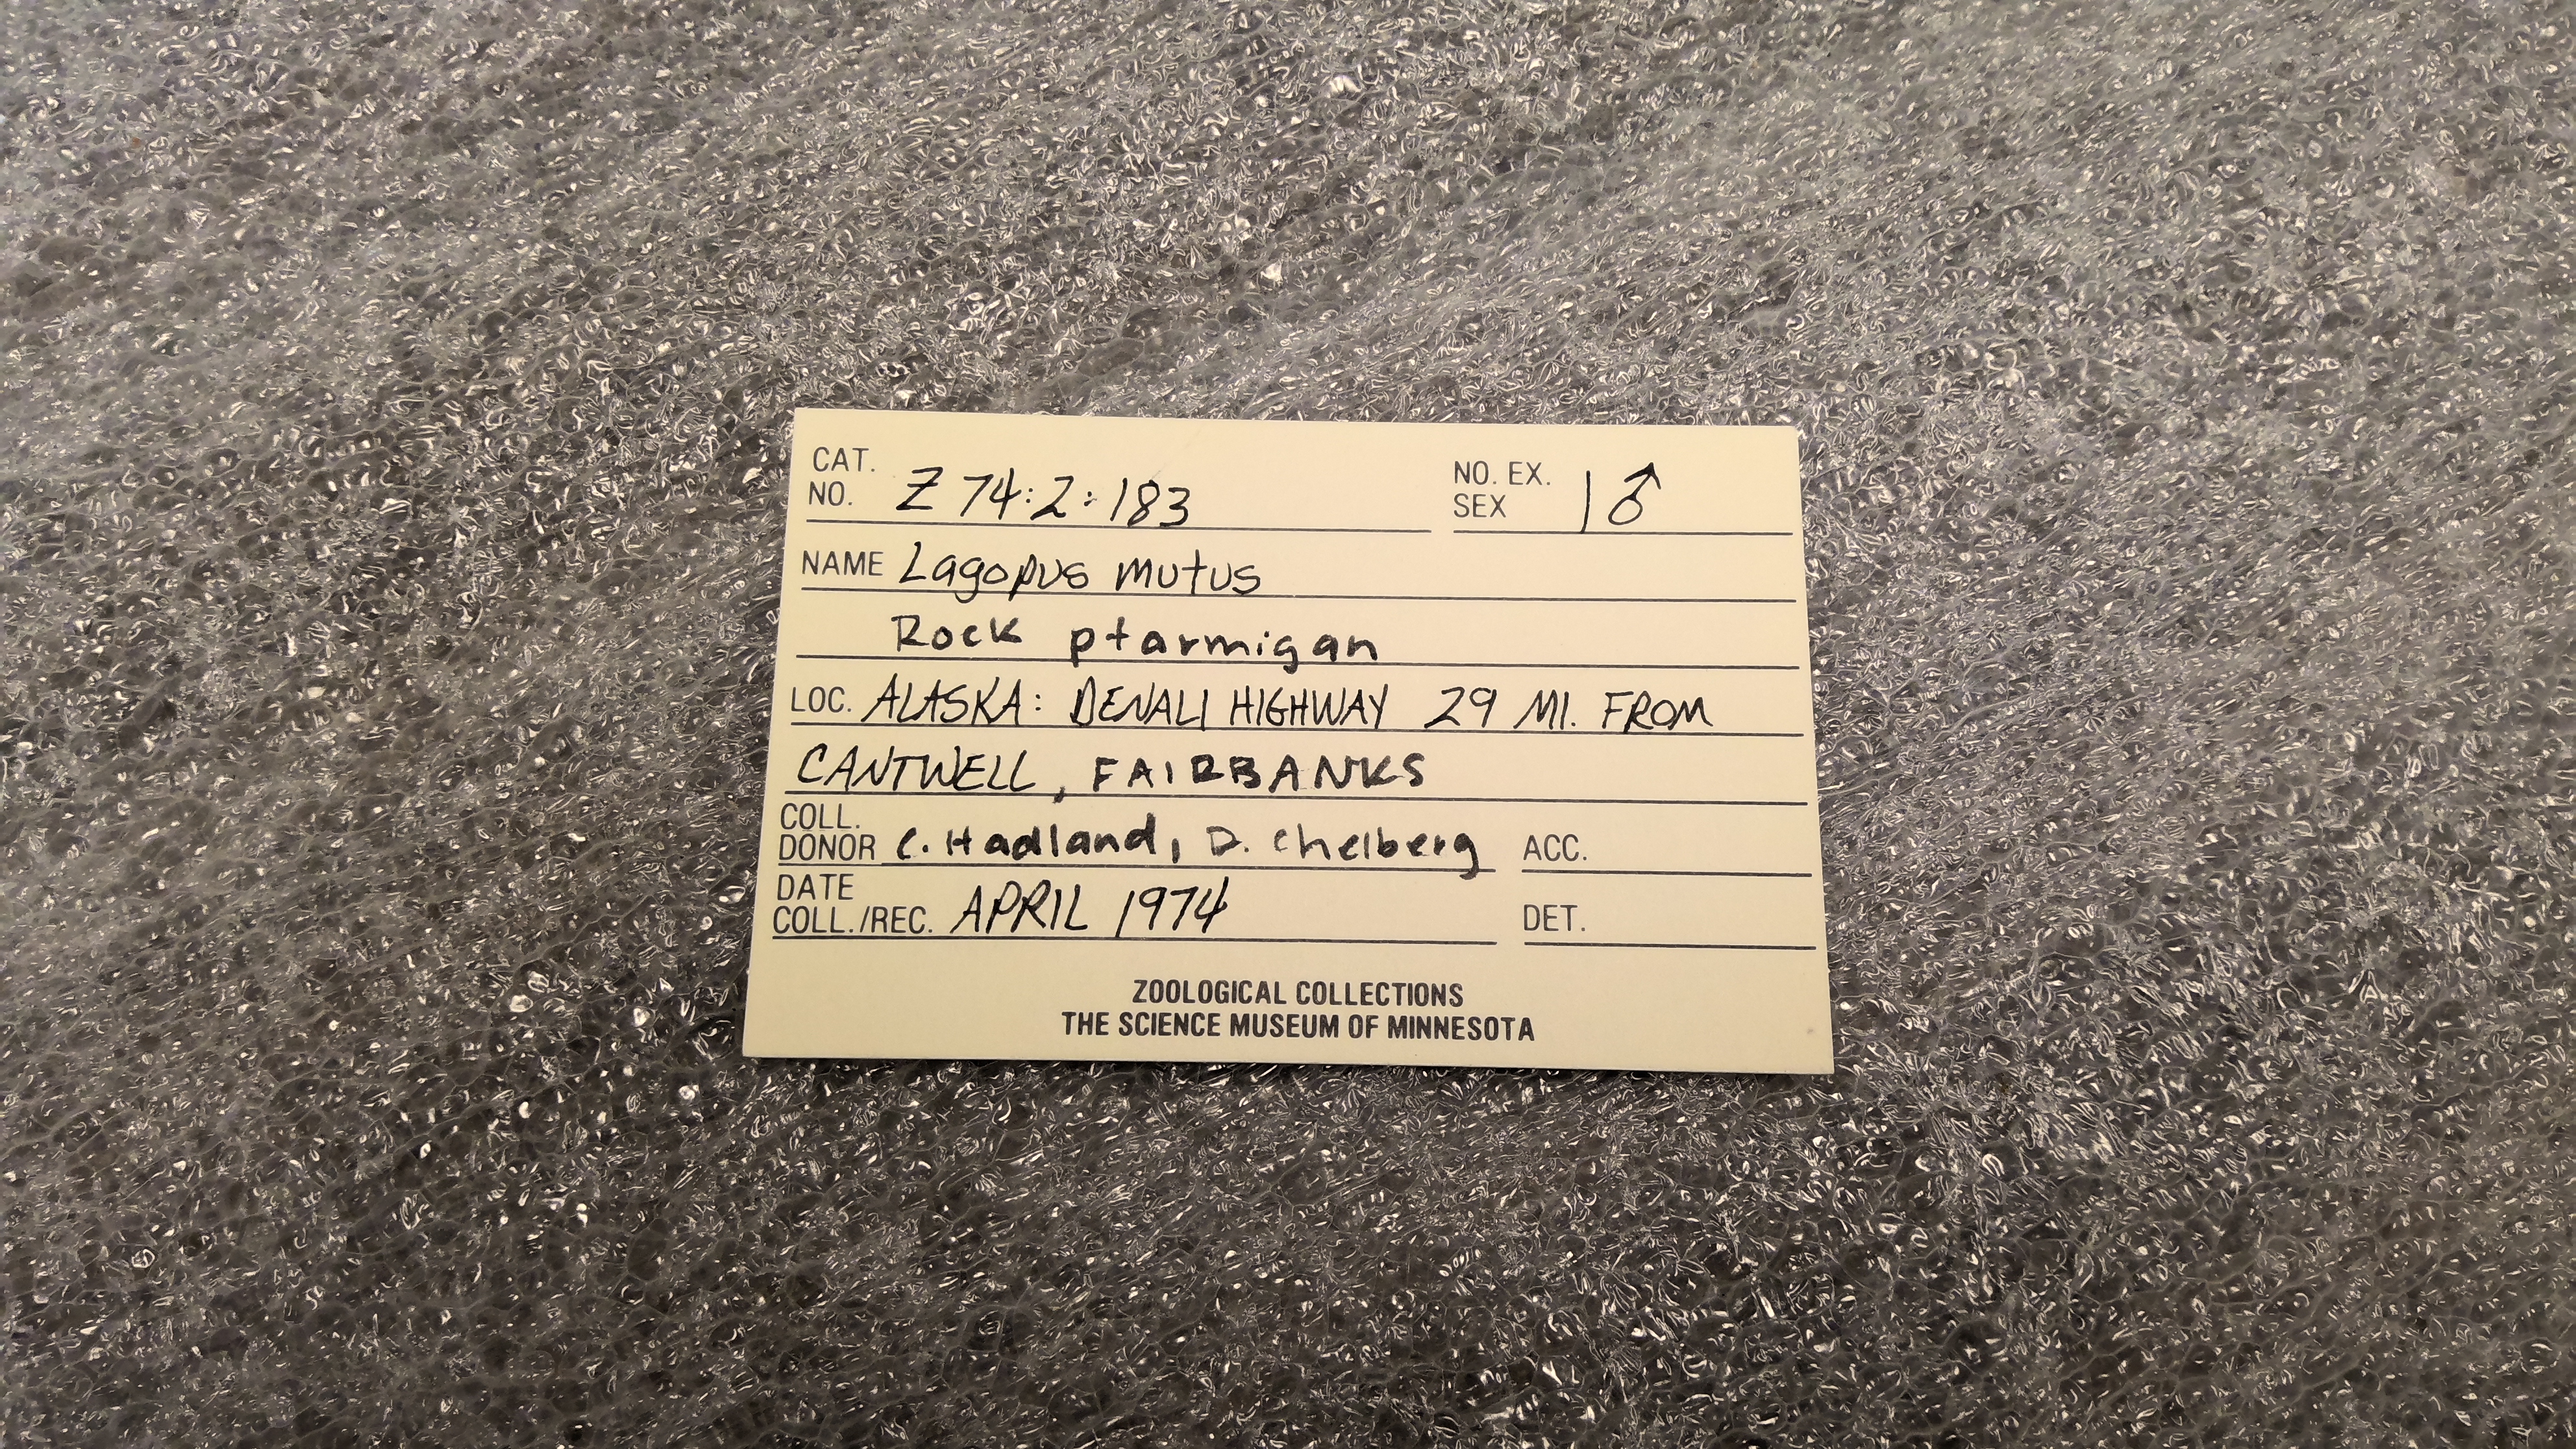 CAT. NO. Z 74:2:183 NO. EX. SEX 1 ♂
NAME Lagopus mutus
Rock ptarmigan
LOC. ALASKA: DENALI HIGHWAY 29 MI. FROM
CANTWELL, FAIRBANKS
COLL. DONOR C. Hadland, D. Chelberg ACC.
DATE COLL./REC. APRIL 1974 DET.
ZOOLOGICAL COLLECTIONS
THE SCIENCE MUSEUM OF MINNESOTA